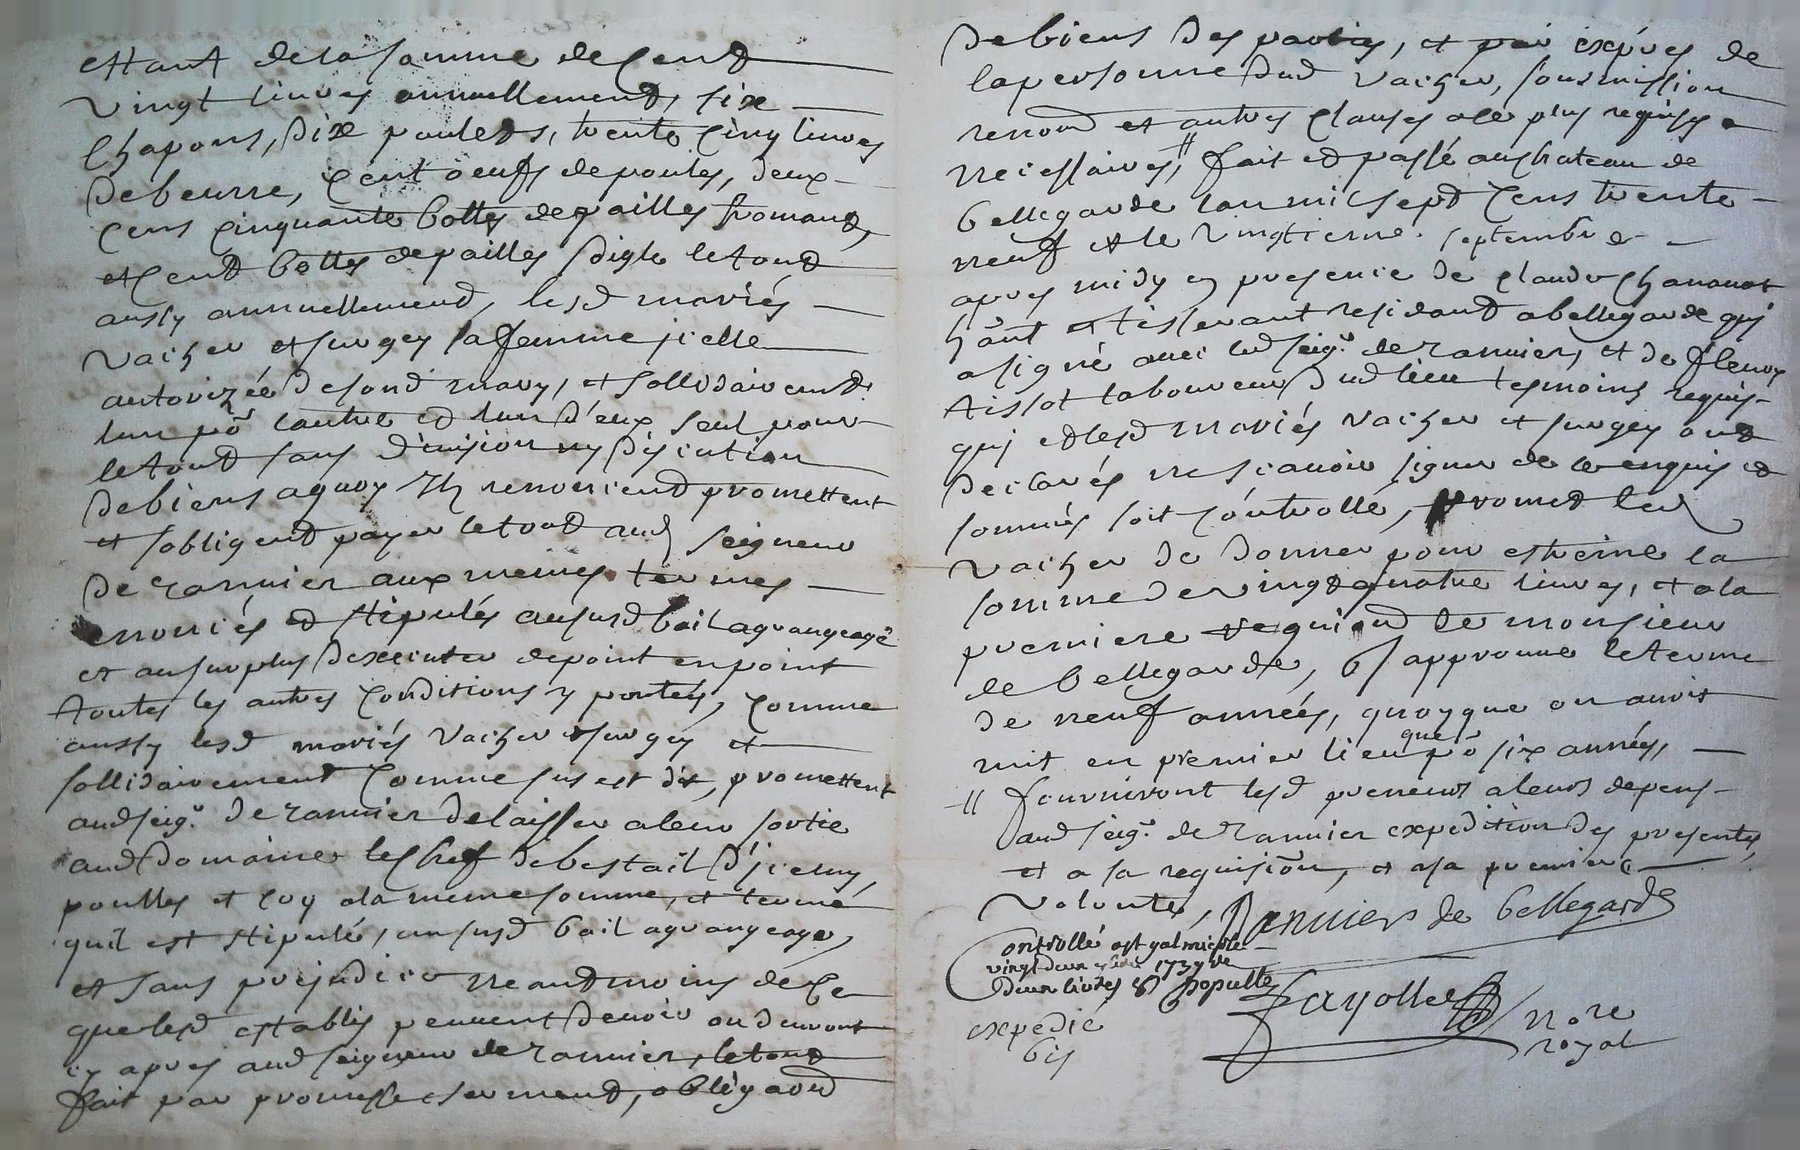 estant de la somme de Cend
vingt livres annuellement, six
Chapons, dix poulets, trente Cinq livres
de beurre, Cent oeufs de poules, deux
Cens Cinquante bottes de pailles fromand,
et Cend bottes de pailles seigle le toud
aussy annuellemend, lesd mariés
Vacher et surgey sa femme jcelle
autorizée de sond mary, et sollidairemd
lun po lautre et lun d'eux seul pour
le toud sans division ny discution
de biens aquoy Ils renonciend promettent
et sobligend payer le toud aud seigneur
De rannier aux memes termes
enoncés et stipulés aususd bail agrangeage
et ausurplus dexecuter depoint enpoint
toutes les autres Conditions y portées, Comme
aussy lesd mariés Vacher et surgey et
sollidairement Comme sus est dit, promettent
aud seigr. De rannier delaisser aleur sortie
aud Domaine le Chef de bestail d'jceluy,
poulles et ala meme somme, et terme
quil est stipulé, aususd bail agrangeage,
et sans prejudice neantmoins de Ce
que lesd establis peuvent devoir ou devront
cy apres aud seigneur de rannier, letoud
fait par promesse serment, obligaond
De biens des parties, et par expres de
lapersonne dud Vacher, soumission
renond et autres Clauses ace plus requises
necessaires, // fait et passé auchateau de
bellegarde lan mil sept Cens trente
neuf et le vingtieme septembre
apres midy en presence de Claude Chananot
hant et tisserant residand abellegarde qui
asigné avec led seigr. de rannier, et de fleury
tissot laboureur dud lieu tesmoins requis
qui et lesd mariés vacher et surgey ond
declarés ne scavoir signer de ce enquis et
sommés soit Controllé, promed led
Vacher de donner pour estreine la
somme de vingd quatre livres, et ala
premiere de monsieur
de bellegarde, Il approuve le terme
de neuf années, quoyque on avoit
mit en premier lieu que po six années,
// fourniront lesd preneurs aleurs depens
aud seigr. de rannier expedition des presentes,
et a sa requision, et asa premiere
Volonté, Rannier de bellegarde
Controllé a st galmier le
vingt deux 1739 re
deux livres 8s Populle
Fayolle Nore
expedié royal
bis